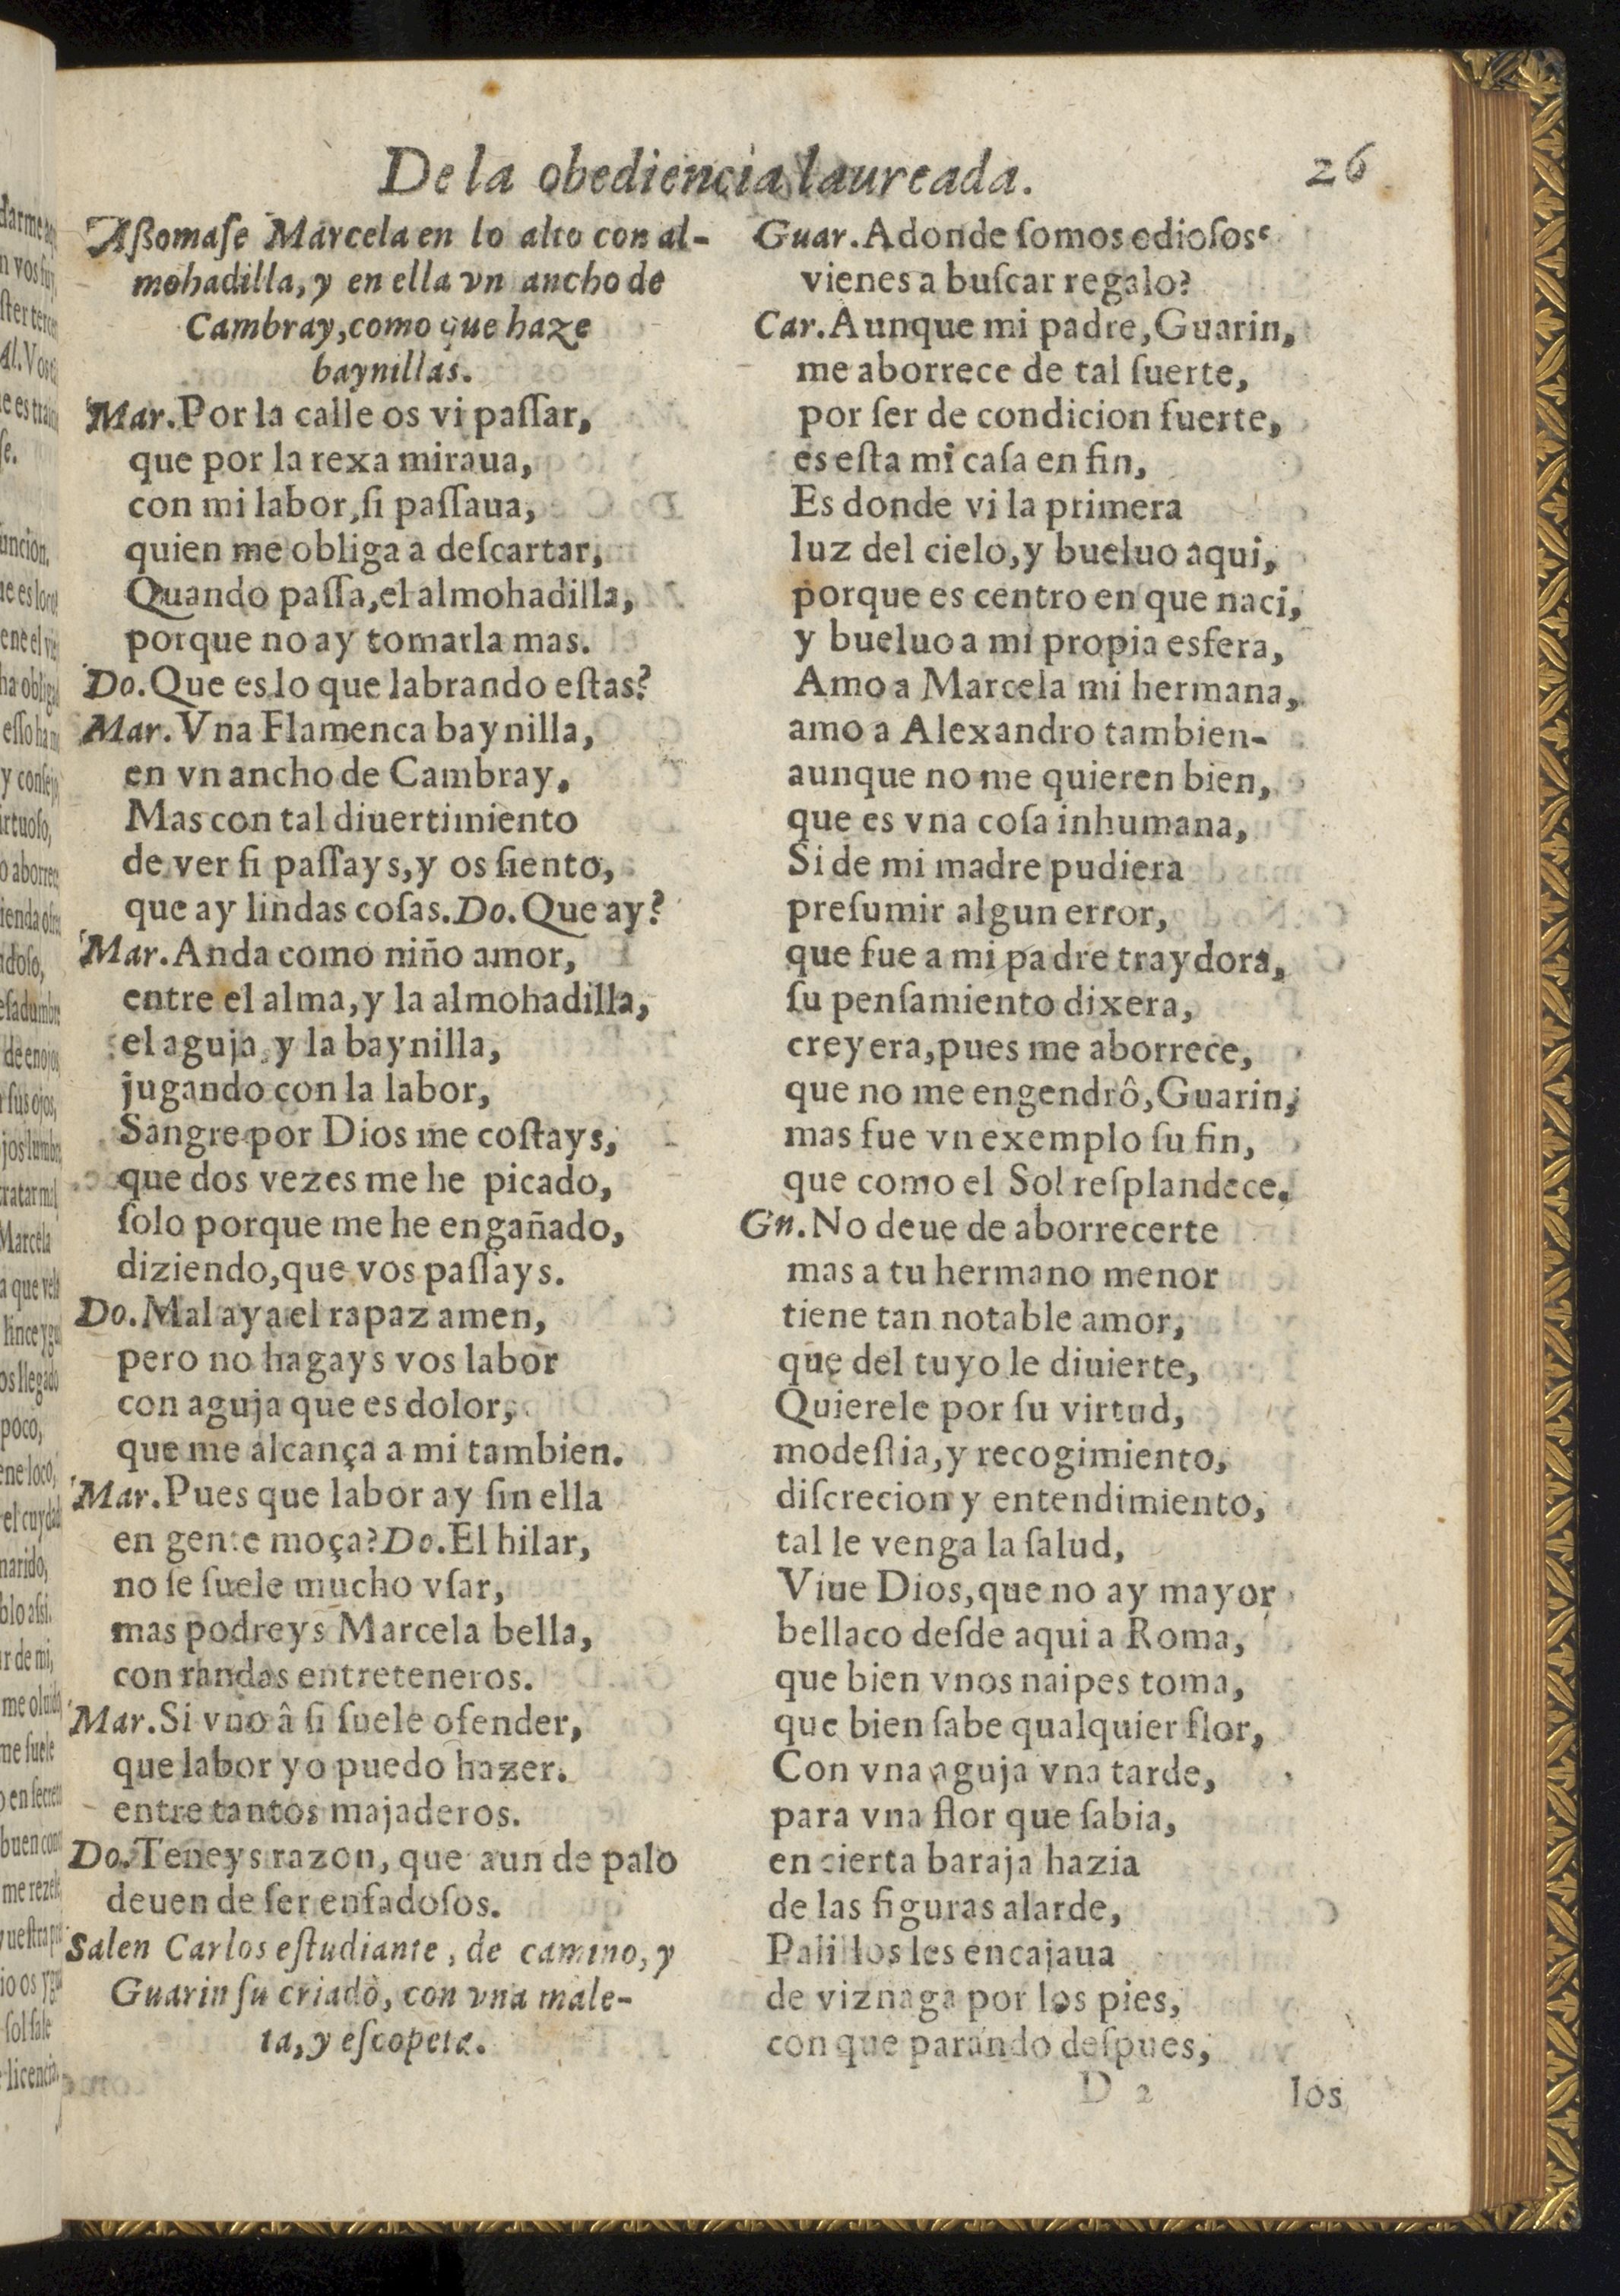 De la obediencia laureada.
26
Aſſomaſe Marcela en lo alto con al-
mohadilla, y en ella vn ancho de
Cambray, como que haze
baynillas.
Mar. Por la calle os vi paſſar,
que por la rexa miraua,
con mi labor, ſi paſſaua,
quien me obliga a deſcartar,
Quando paſſa, el almohadilla,
porque no ay tomarla mas.
Do. Que es lo que labrando eſtas?
Mar. Vna Flamenca baynilla,
en vn ancho de Cambray.
Mas con tal diuertimiento
de ver ſi paſſays, y os ſiento,
que ay lindas coſas. Do. Que ay?
Mar. Anda como niño amor,
entre el alma, y la almohadilla,
el aguja, y la baynilla,
jugando con la labor,
Sangre por Dios me coſtays,
que dos vezes me he picado,
ſolo porque me he engañado,
diziendo, que vos paſſays.
Do. Mal aya el rapaz amen,
pero no hagays vos labor
con aguja que es dolor,
que me alcança a mi tambien.
Mar. Pues que labor ay ſin ella
en gente moça? Do. El hilar,
no ſe ſuele mucho vſar,
mas podreys Marcela bella,
con randas entreteneros.
Mar. Si vno â ſi ſuele ofender,
que labor yo puedo hazer.
entre tantos majaderos.
Do. Teneys razon, que aun de palo
deuen de ſer enfadoſos.
Salen Carlos eſtudiante, de camino, y
Guarin ſu criado, con vna male-
ta, y eſcopeta.
Guar. Adonde ſomos odioſos
vienes a buſcar regalo?
Car. Aunque mi padre, Guarin,
me aborrece de tal ſuerte,
por ſer de condicion fuerte,
es eſta mi caſa en fin,
Es donde vi la primera
luz del cielo, y bueluo aqui,
porque es centro en que naci,
y bueluo a mi propia esfera,
Amo a Marcela mi hermana,
amo a Alexandro tambien-
aunque no me quieren bien,
que es vna coſa inhumana,
Si de mi madre pudiera
preſumir algun error,
que fue a mi padre traydora,
ſu penſamiento dixera,
creyera, pues me aborrece,
que no me engendrô, Guarin;
mas fue vn exemplo ſu fin,
que como el Sol reſplandece.
Gu. No deue de aborrecerte
mas a tu hermano menor
tiene tan notable amor,
que del tuyo le diuierte,
Quierele por ſu virtud,
modeſtia, y recogimiento,
diſcrecion y entendimiento,
tal le venga la ſalud,
Viue Dios, que no ay mayor
bellaco deſde aqui a Roma,
que bien vnos naipes toma,
que bien ſabe qualquier flor,
Con vna aguja vna tarde,
para vna flor que ſabia,
en cierta baraja hazia
de las figuras alarde,
Palillos les encajaua
de viznaga por los pies,
con que parando deſpues,
D 2
los